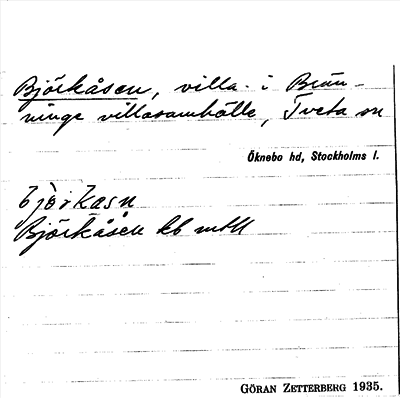 Björkåsen, villa i Brän-
ninge villasamhälle, Tveta sn
Öknebo hd, Stockholms l.
Björkåsen kb mtU
GÖRAN ZETTERBERG 1935.